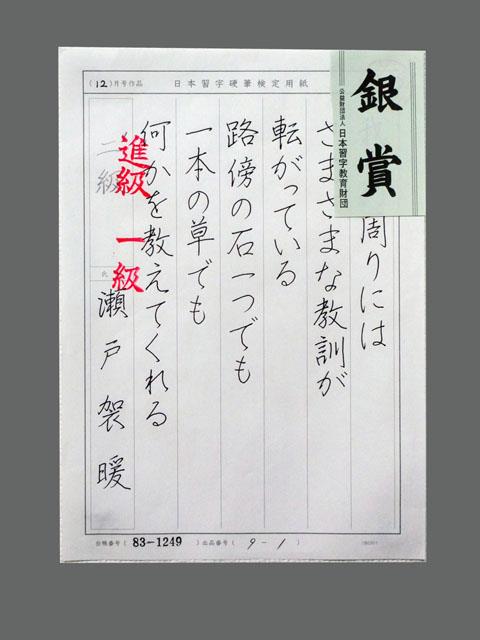 (12)月号作品
日本習字硬筆検定用紙
銀賞
公益財団法人 日本習字教育財団
周りには
さまざまな教訓が
転がっている
路傍の石一つでも
一本の草でも
何かを教えてくれる
二級
進級 一級
氏
瀬戸袈暖
台帳番号( 83-1249 )出品番号( 9-1 )